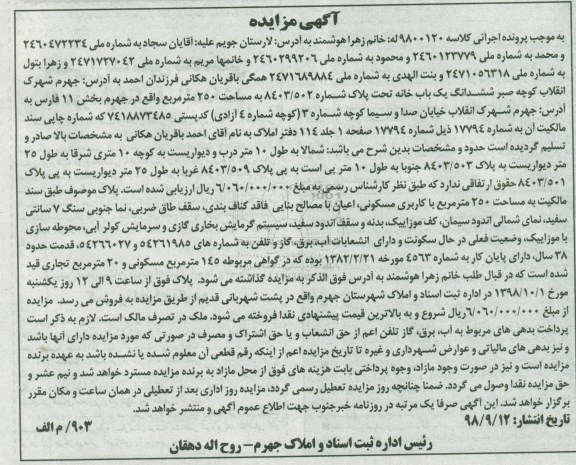 آگهی مزایده
به موجب پرونده اجرائی کلاسه ۹۸۰۰۱۲۰ له: خانم زهرا هوشمند به آدرس: لارستان جویم علیه: آقایان سجاد به شماره ملی ۲۴۶۰۴۷۲۲۳۴
و محمد به شماره ملی ۲۴۶۰۱۲۳۷۷۹ و محمود به شماره ملی ۲۴۶۰۲۹۹۲۰۶ و خانمها مریم به شماره ملی ۲۴۷۱۷۲۷۰۴۲ و زهرا بتول
به شماره ملی ۲۴۷۱۰۵۶۳۱۸ و بنت الهدی به شماره ملی ۲۴۷۱۶۸۹۸۸۴ همگی باقریان هکانی فرزندان احمد به آدرس: جهرم شهرک
انقلاب کوچه صبر ششدانگ یک باب خانه تحت پلاک شماره ۸۴۰۳/۵۰۲ به مساحت ۲۵۰ مترمربع واقع در جهرم بخش ۱۱ فارس به
آدرس: جهرم شهرک انقلاب خیابان صدا و سیما کوچه شماره ۳ (کوچه شماره ۴ آزادی) کدپستی ۷۴۱۸۸۷۳۴۸۵ که شماره چاپی سند
مالکیت آن به شماره ۱۷۷۹۴ ذیل شماره ۱۷۷۹۴ صفحه ۱ جلد ۱۱۴ دفتر املاک به نام آقای احمد باقریان هکانی به مشخصات بالا صادر و
تسلیم گردیده است حدود و مشخصات بدین شرح می باشد: شمالا به طول ۱۰ متر درب و دیواریست به کوچه ۱۰ متری شرقا به طول ۲۵
متر دیواریست به پلاک ۸۴۰۳/۵۰۳ جنوبا به طول ۱۰ متر پی است به پی پلاک ۸۴۰۳/۵۰۹ غربا به طول ۲۵ متر دیواریست به پی پلاک
۸۴۰۳/۵۰۱ حقوق ارتفاقی ندارد که طبق نظر کارشناس رسمی به مبلغ ۶/۰۶۰/۰۰۰/۰۰۰ ریال ارزیابی شده است، پلاک موصوف طبق سند
مالکیت به مساحت ۲۵۰ مترمربع با کاربری مسکونی، اعیان با مصالح بنایی فاقد کناف بندی، سقف طاق ضربی، نما جنوبی سنگ ۷ سانتی
سفید، نمای شمالی اندود سیمان، کف موزاییک، بدنه و سقف اندود سفید، سیستم گرمایش بخاری گازی و سرمایش کولر آبی، محوطه سازی
با موزاییک، وضعیت فعلی در حال سکونت و دارای انشعابات آب، برق، گاز و تلفن به شماره های ۵۴۲۶۱۹۸۵ و ۵۴۲۶۶۰۲۷، قدمت حدود
۳۸ سال، دارای پایان کار به شماره ۴۵۶۳ مورخه ۱۳۸۲/۲/۲۱ بوده که در گواهی مربوطه ۱۴۵ مترمربع مسکونی و ۲۰ مترمربع تجاری قید
شده است که در قبال طلب خانم زهرا هوشمند به آدرس فوق الذکر به مزایده گذاشته می شود. پلاک فوق از ساعت ۹ الی ۱۲ روز یکشنبه
مورخ ۱۳۹۸/۱۰/۱ در اداره ثبت اسناد و املاک شهرستان جهرم واقع در پشت شهربانی قدیم از طریق مزایده به فروش می رسد. مزایده
از مبلغ ۶/۰۶۰/۰۰۰/۰۰۰ ریال شروع و به بالاترین قیمت پیشنهادی نقدا فروخته می شود. ملک در تصرف مالک است. لازم به ذکر است
پرداخت بدهی های مربوط به آب، برق، گاز تلفن اعم از حق انشعاب و یا حق اشتراک و مصرف در صورتی که مورد مزایده دارای آنها باشد
و نیز بدهی های مالیاتی و عوارض شهرداری و غیره تا تاریخ مزایده اعم از اینکه رقم قطعی آن معلوم شده یا نشده باشد به عهده برنده
مزایده است و نیز در صورت وجود مازاد، وجوه پرداختی بابت هزینه های فوق از محل مازاد به برنده مزایده مسترد خواهد شد و نیم عشر و
حق مزایده نقدا وصول می گردد. ضمنا چنانچه روز مزایده تعطیل رسمی گردد، مزایده روز اداری بعد از تعطیلی در همان ساعت و مکان مقرر
برگزار خواهد شد. این آگهی صرفا یک مرتبه در روزنامه خبرجنوب جهت اطلاع عموم آگهی و منتشر خواهد شد.
تاریخ انتشار: ۹۸/۹/۱۲ ۹۰۳/ م الف
رئیس اداره ثبت اسناد و املاک جهرم - روح اله دهقان